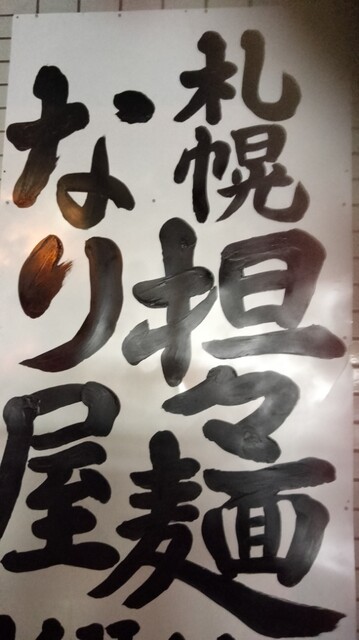 札幌担々麺
なり屋